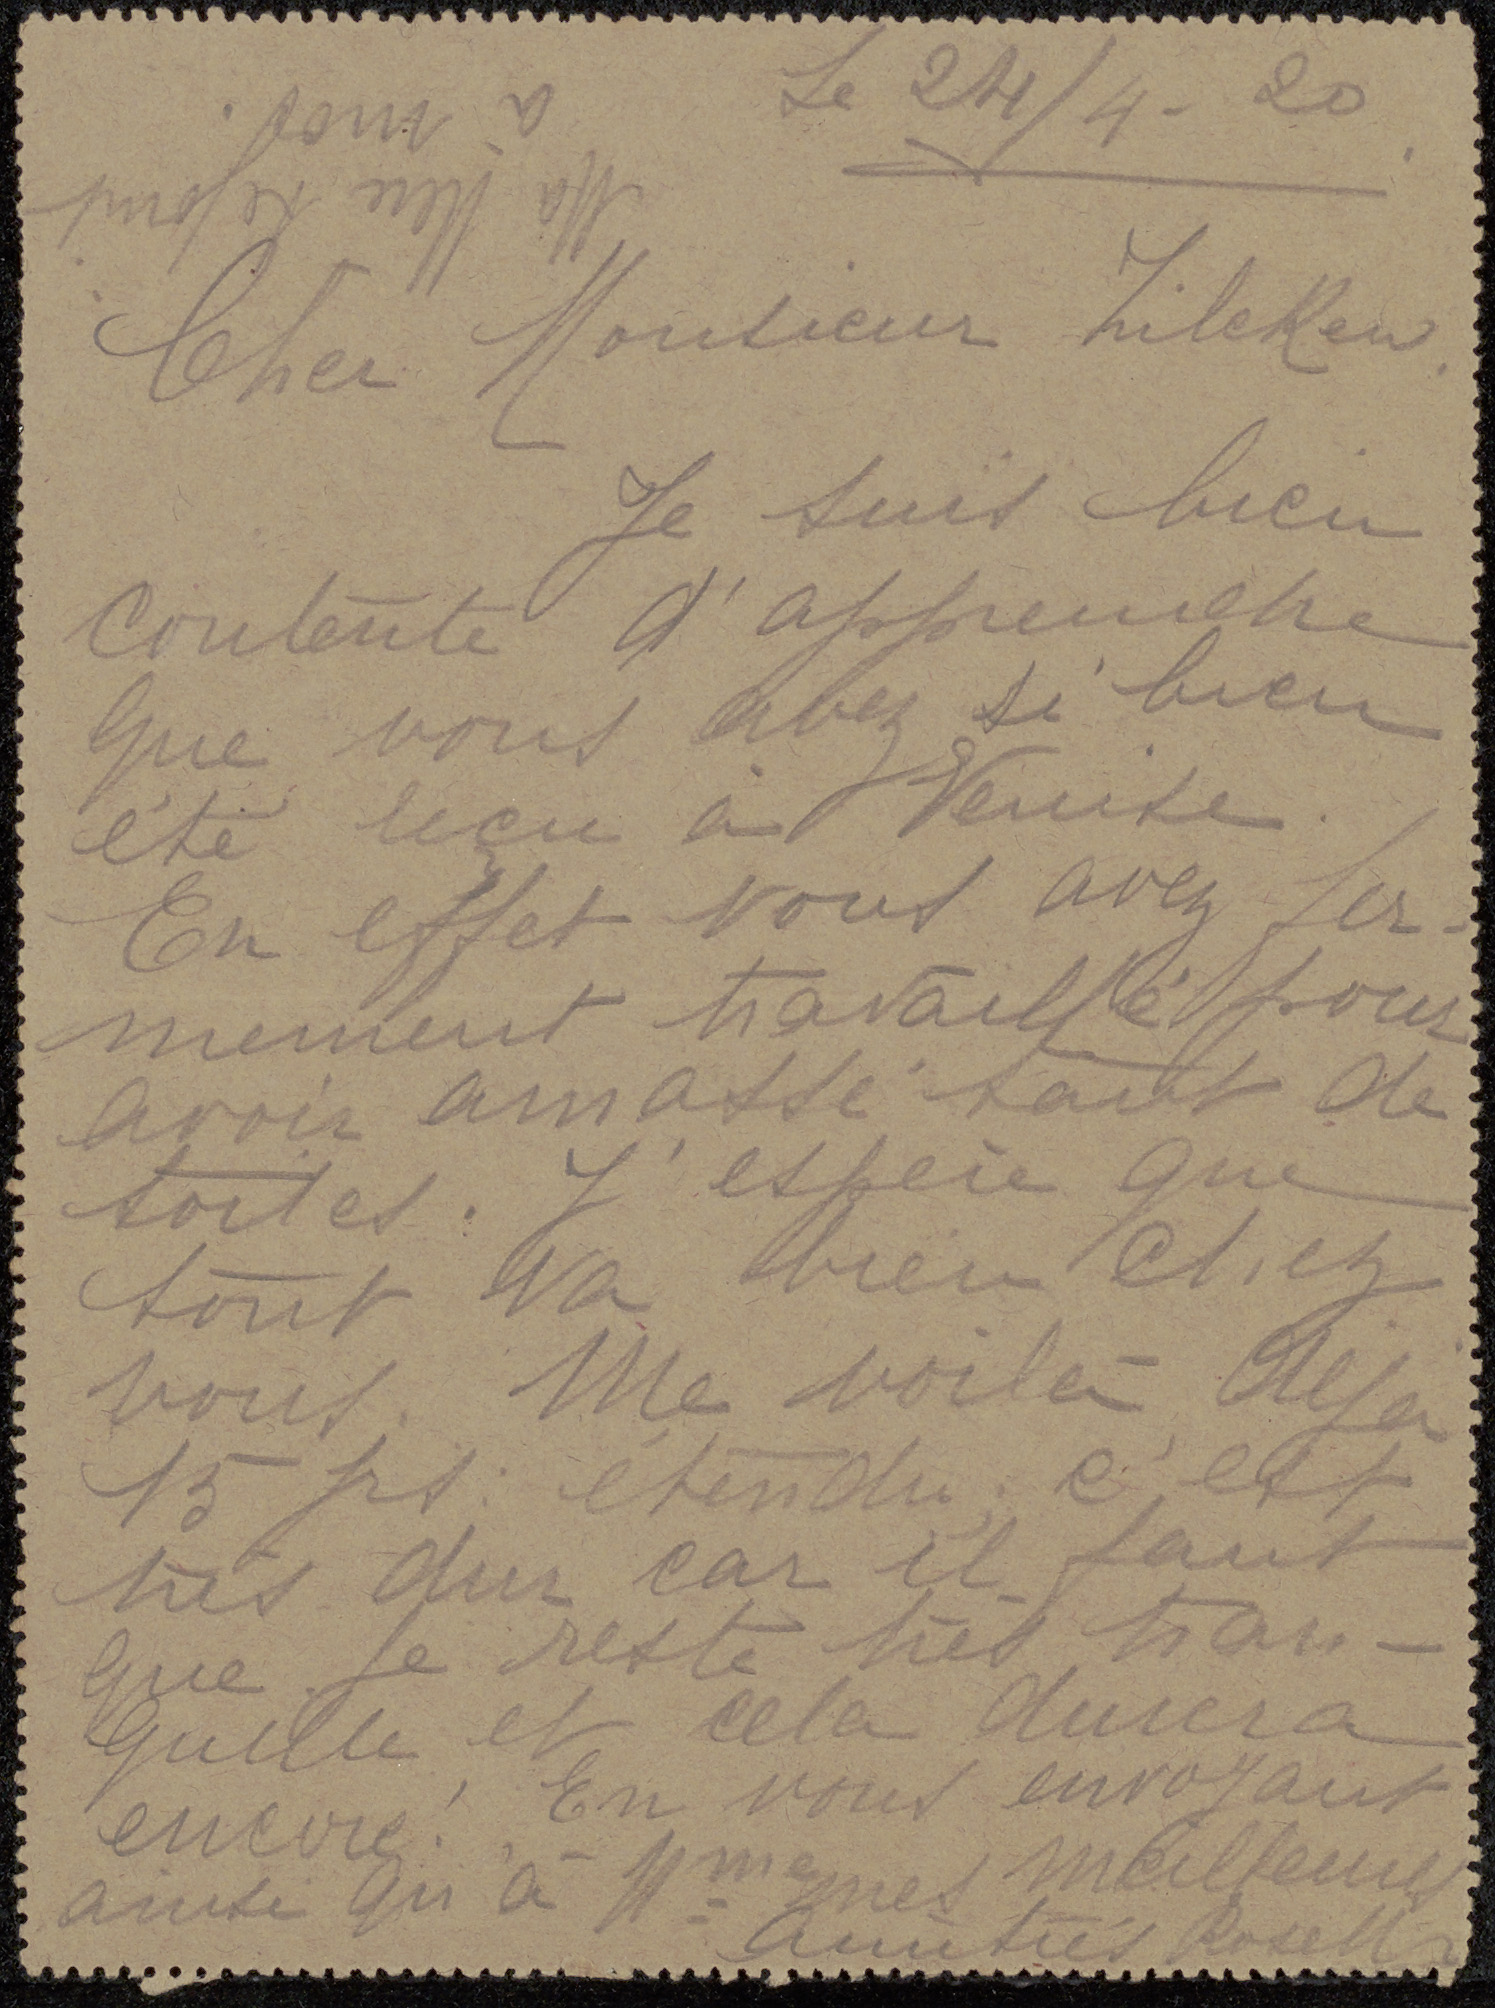 Le 24/4 - 20.
Cher Monsieur Zilcken.
Je suis bien
contente d'apprendre
que vous avez si bien
été reçu à Venise.
En effet vous avez fer-
mement travaillé pour
avoir amassé tant de
toiles. J'espère que
tout va bien chez
vous. Me voilà déjà
15 js: étendu; c'est
très dur car il faut
que je reste très tran-
quille et cela durera
encore! En vous envoyant
ainsi qu'à Mme mes meilleures
amitiés
Ma Mère se joint
à moi.